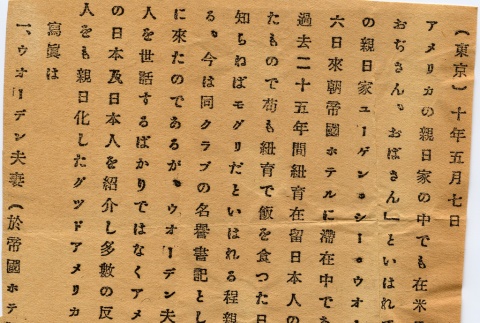 (東京) 十年五月七日
アメリカの親日家の中でも在米
おぢさん。おばさん」といはれて
の親日家ユーゲン・シー・ウオー
六日來朝帝國ホテルに滯在中であ
過去二十五年間紐育在留日本人の
たもので苟も紐育で飯を食つた日
知らねばモグリだといはれる程親
る。今は同クラブの名譽書記とし
に來たのであるが。ウオーデン夫
人を世話するばかりではなくアメ
の日本及日本人を紹介し多數の反
人をも親日化したグツドアメリカ
寫眞は
一、ウオーデン夫妻 (於帝國ホテ